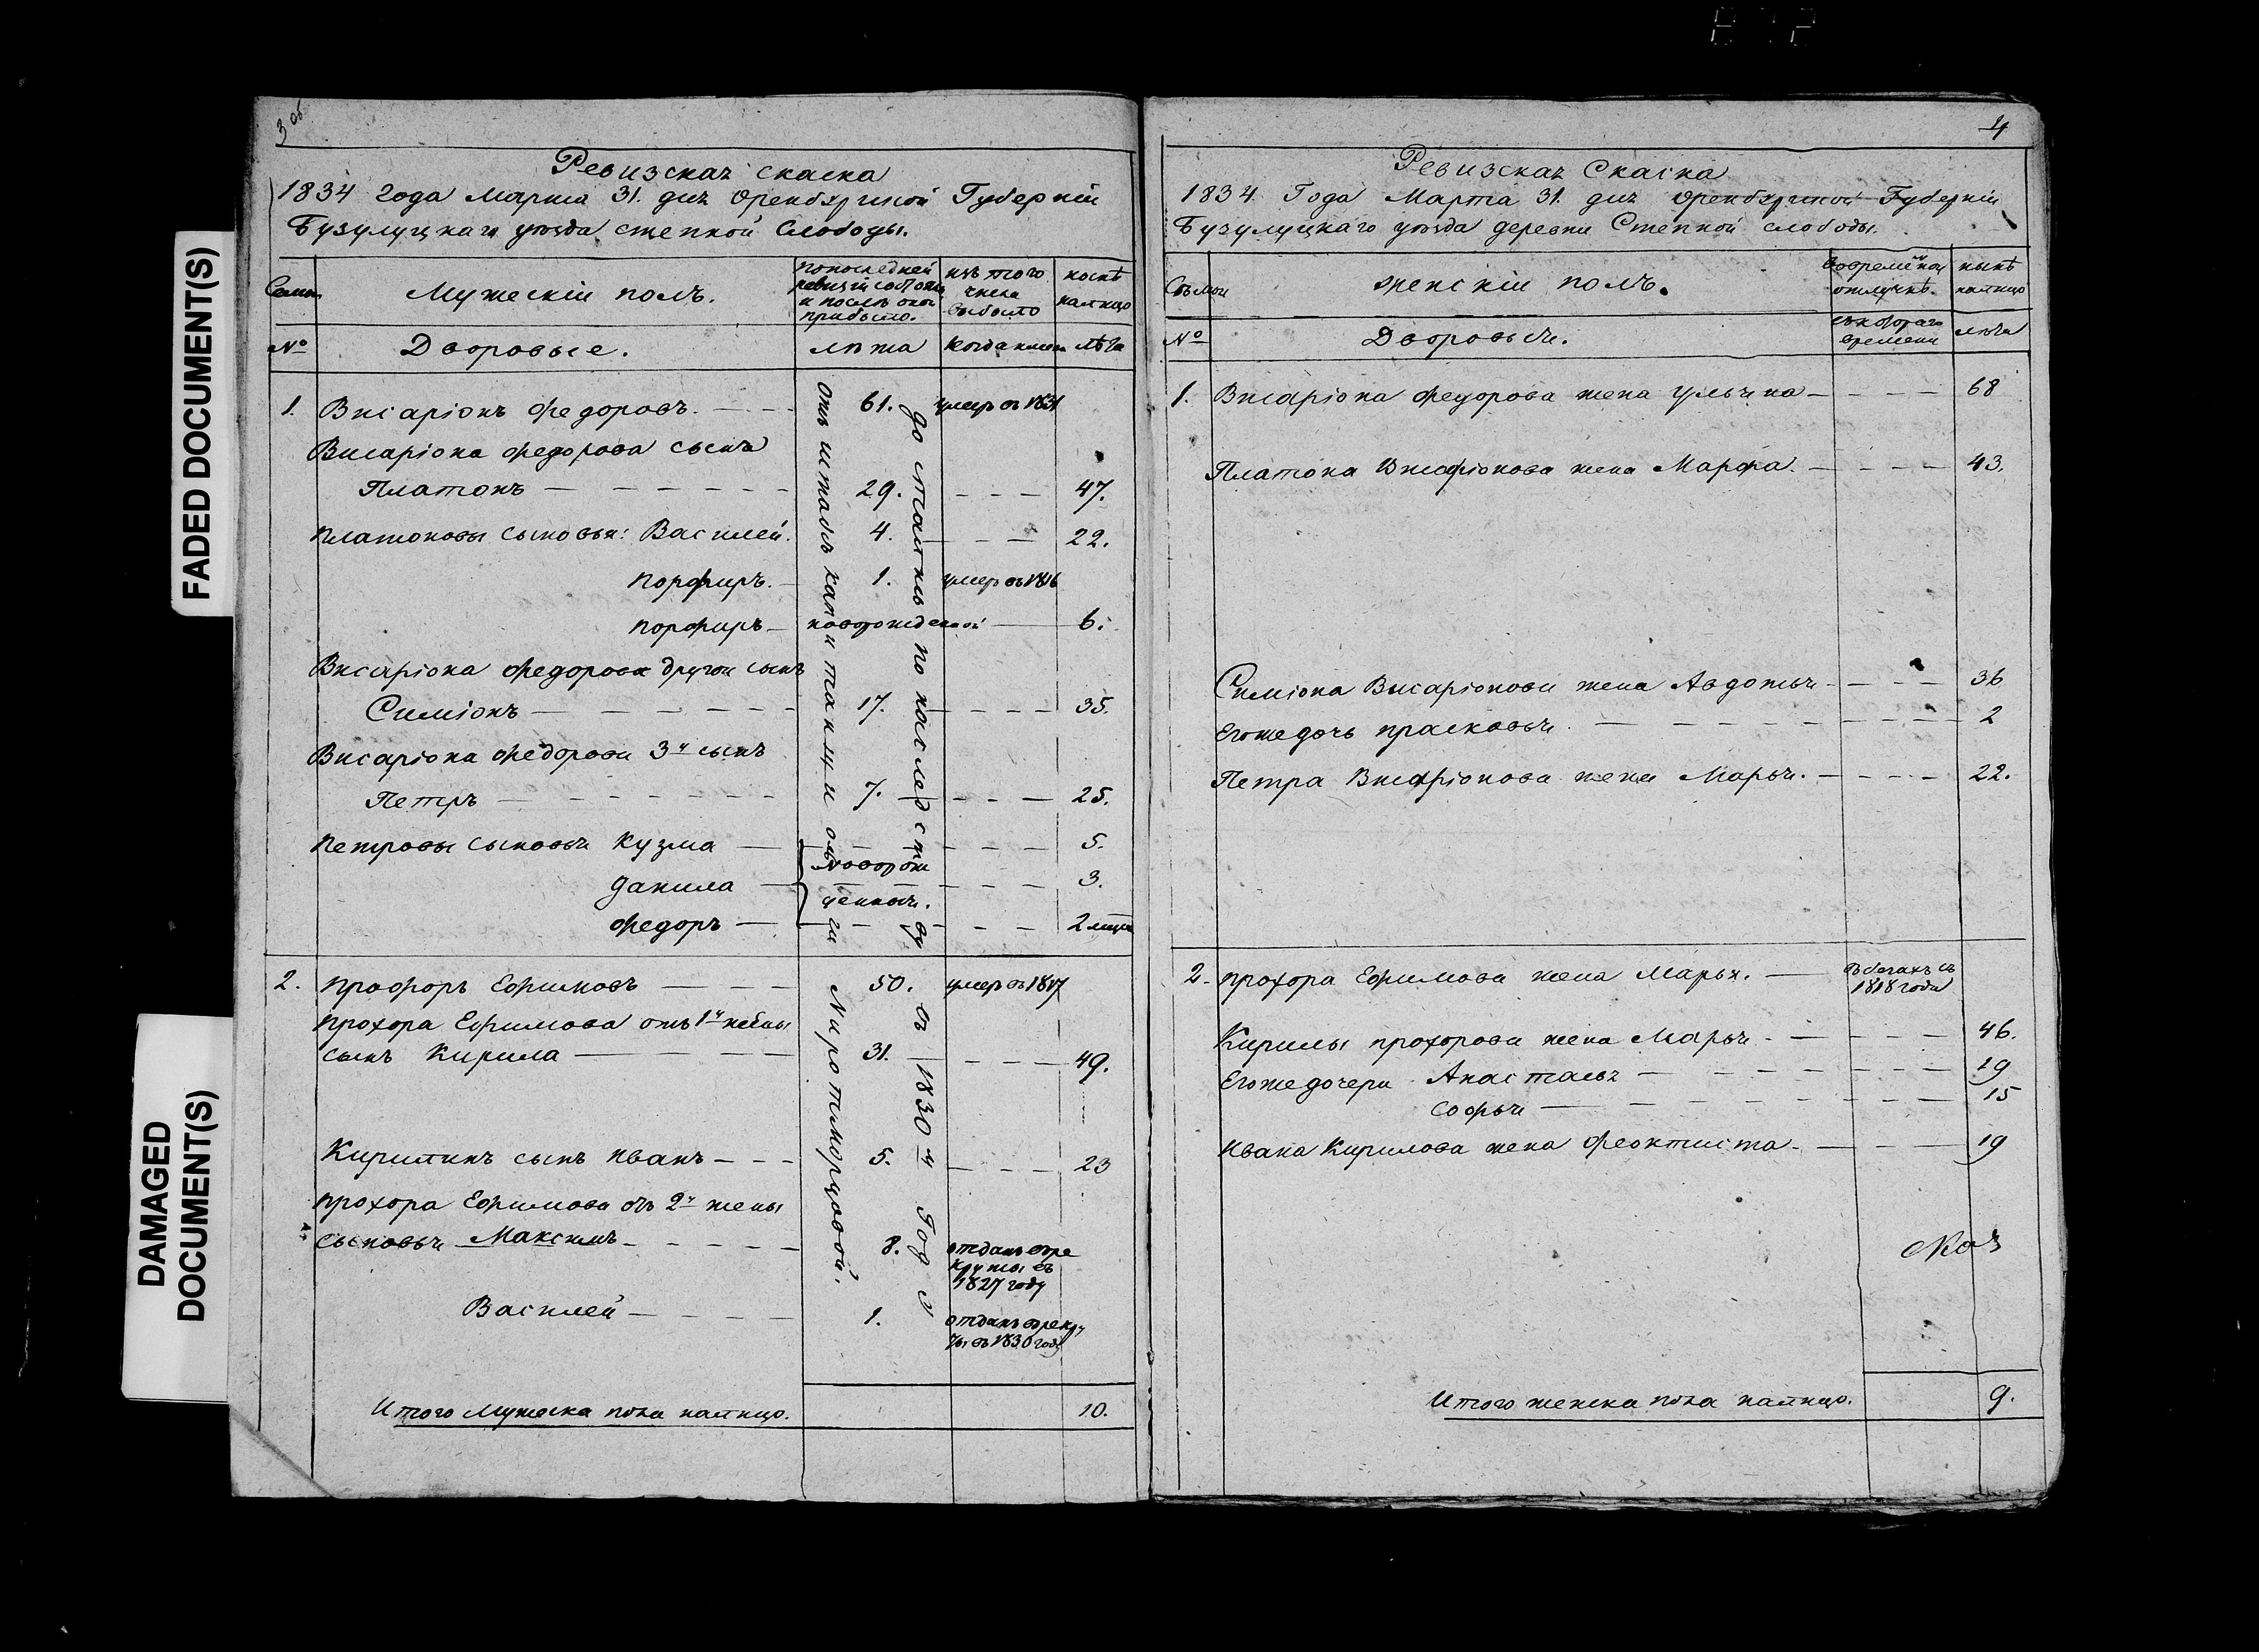 FADED DOCUMENT(S)
DAMAGED
DOCUMENT(S)
3 об
Ревизская скаска
1834 года Марта 31. дня Оренбургской Губерніи
Бузулуцкаго уезда степной Слободы.
Мужескіи полъ.
по последней
ревизіи состояло
и после оной
прибыло.
изъ того
числа
выбыло
ныне
налицо
№
Дворовые.
лета
Когда именно
лета
1. Висаріонъ Федоровъ. 61. умеръ въ 1831
Висаріона Федорова сынъ
Платонъ 29. 47.
Платоновы сыновья: Василей. 4. 22.
Порфиръ. 1. умеръ въ 1816
Порфиръ новорожденной 6.
Висаріона Федорова другой сынъ
Симіонъ 17. 35.
Висаріона Федорова 3й сынъ
Петръ 7. 25.
Петровы сыновья Кузма 5.
Данила новорож 3.
денныя.
Федоръ 2
2. Профоръ Ефимовъ 50. умеръ въ 1817
Прохора Ефимова отъ 1й жены
сынъ Кирила 31. 49.
Кирилинъ сынъ Иванъ 5. 23
Прохора Ефимова отъ 2й жены
сыновья Максимъ 8. отданъ в ре
круты въ
1827 году
Василей 1. отданъ в рекру
ты въ 1830 году
Итого Мужеска пола налицо. 10.
отъ штабъ капитанши Ольги Миротворцовой.
до сталась по наследству
въ 1830 м Год у
4
Ревизская Скаска
1834 Года Марта 31. дня Оренбургской Губерніи
Бузулуцкаго уезда деревни Степной слободы.
Семьи
женскіи полъ.
во временной
отлучке.
ныне
налицо
№
Дворовыя.
съ котораго
времени
лета
1. Висаріона Федорова жена Ульяна 68
Платона Висаріонова жена Марфа. 43.
Симіона Висаріонова жена Авдотья 36
Егоже дочь Прасковья 2
Петра Висаріонова жена Марья. 22.
2. Прохора Ефимова жена Марья. въ бегахъ съ
1818 года
Кирилы Прохорова жена Марья 46.
Егоже дочери Анастасья 19
Софья 15
Ивана Кирилова жена Феоктиста 19
Итого женска пола налицо. 9.